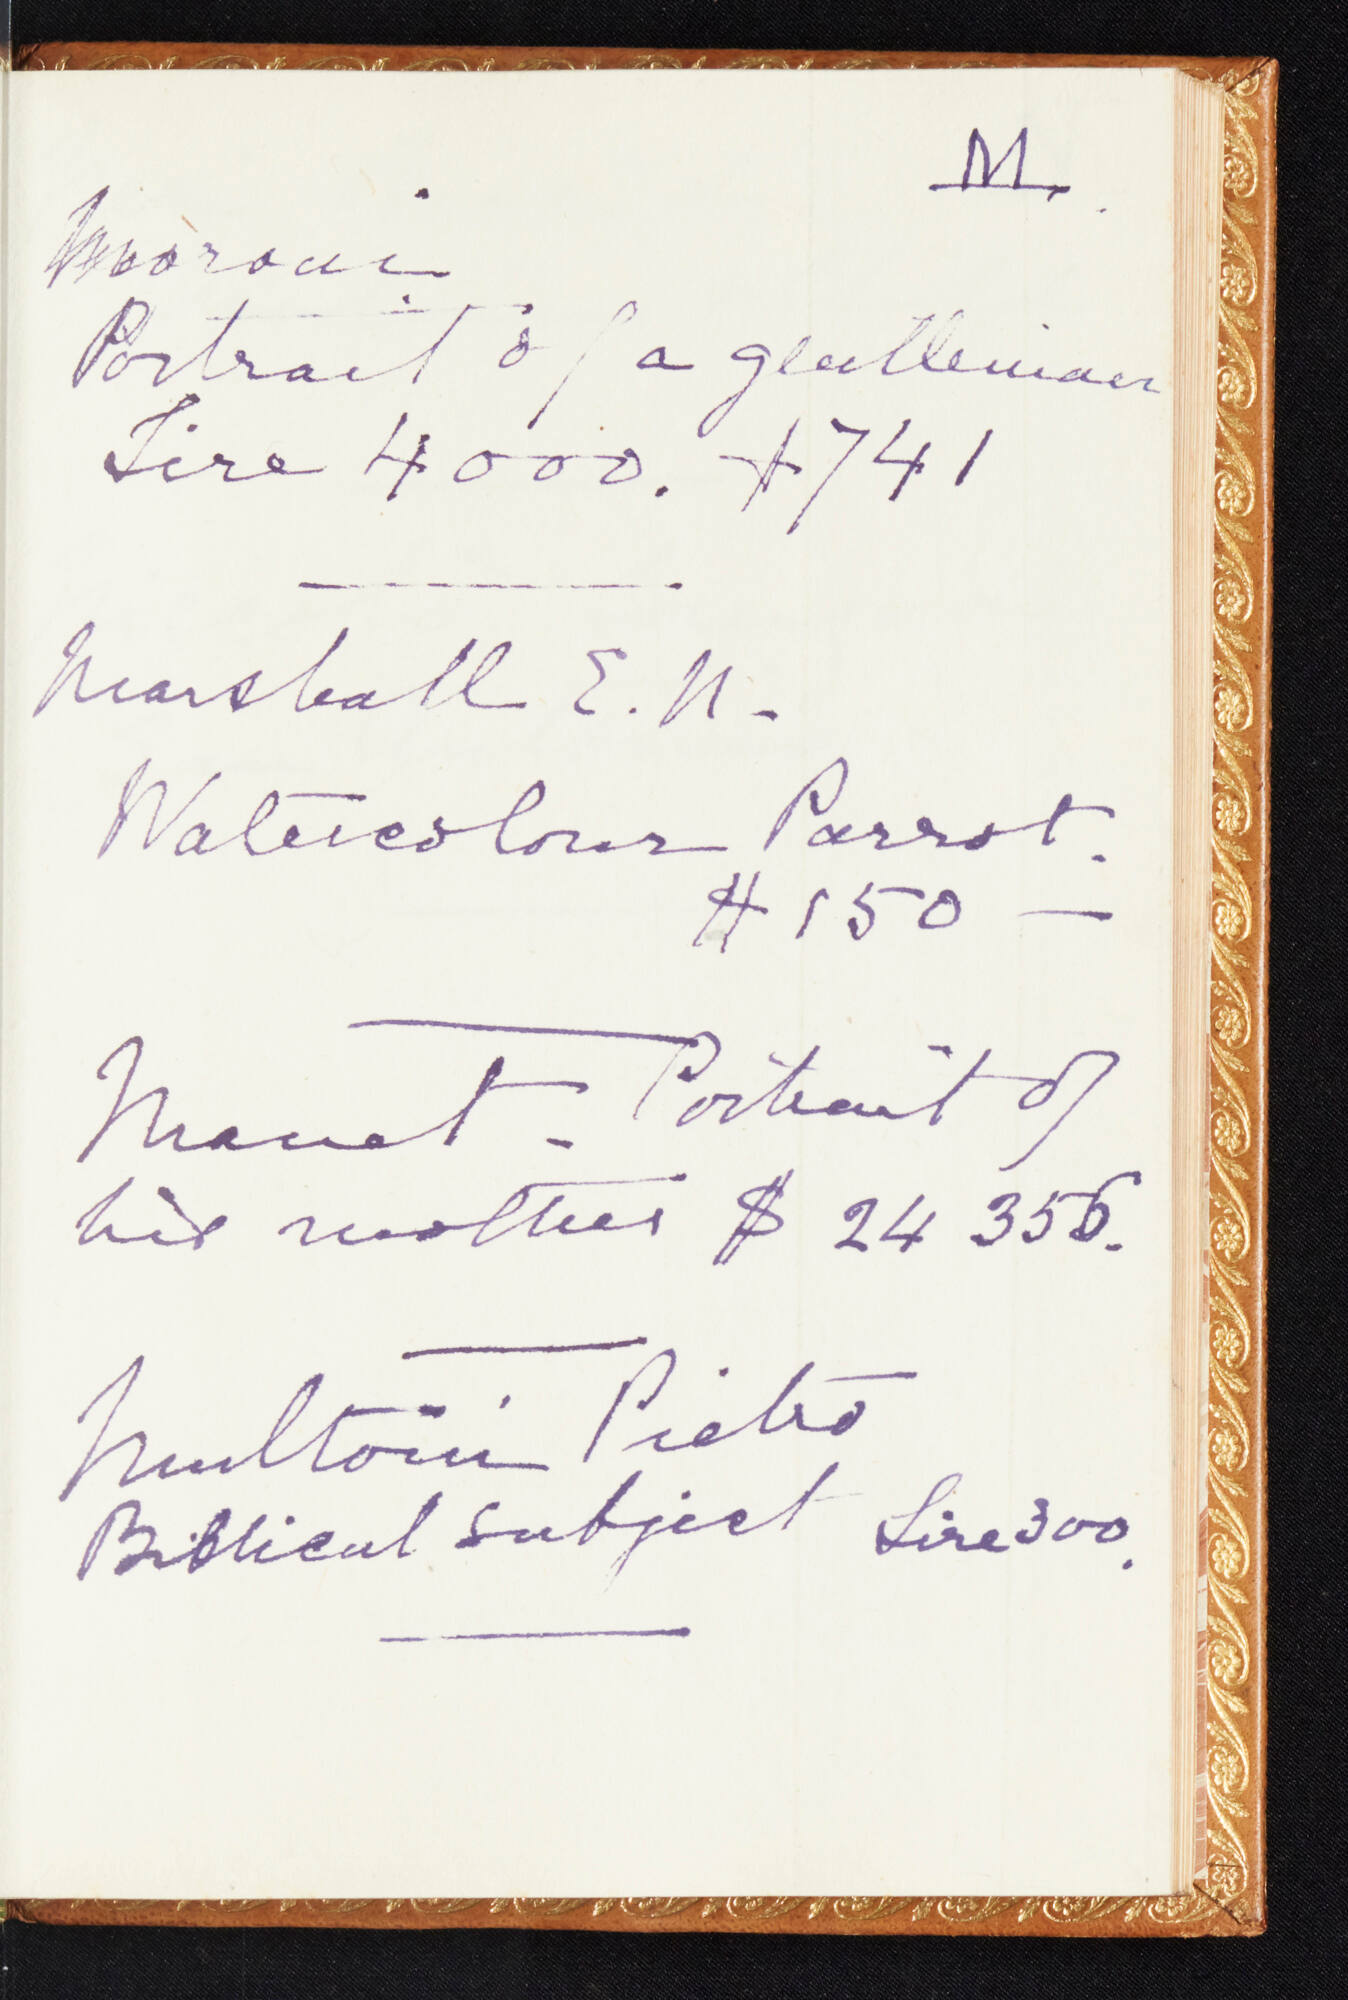 M.
Moroni
Portrait of a gentleman
Lire 4000. $741
Marshall E. N.
Watercolour Parrot.
$150 —
Manet - Portrait of
his mother $ 24 356.
Multoni Pietro
Biblical subject Lire 300.